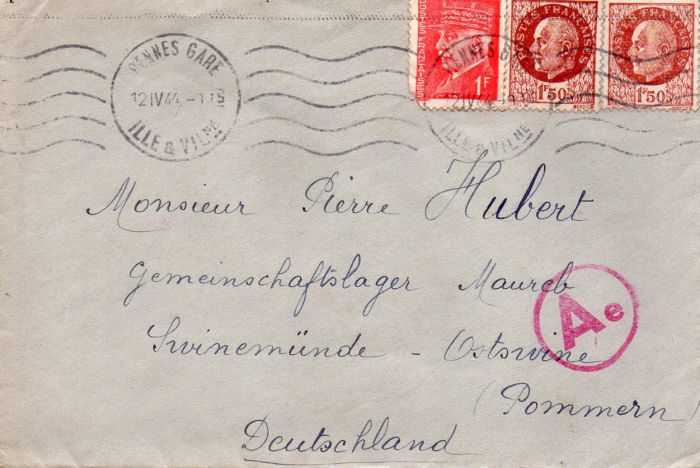 POSTES FRANÇAISES
POSTES FRANÇAISES
1F
1F50
1F50
RENNES GARE
12 IV 44
ILLE & VILNE
RENNES G
12 IV 44
ILLE & VILNE
Monsieur Pierre Hubert
Gemeinschaftslager Maureb
Swinemünde - Ostswine
(Pommern)
Deutschland
Ae